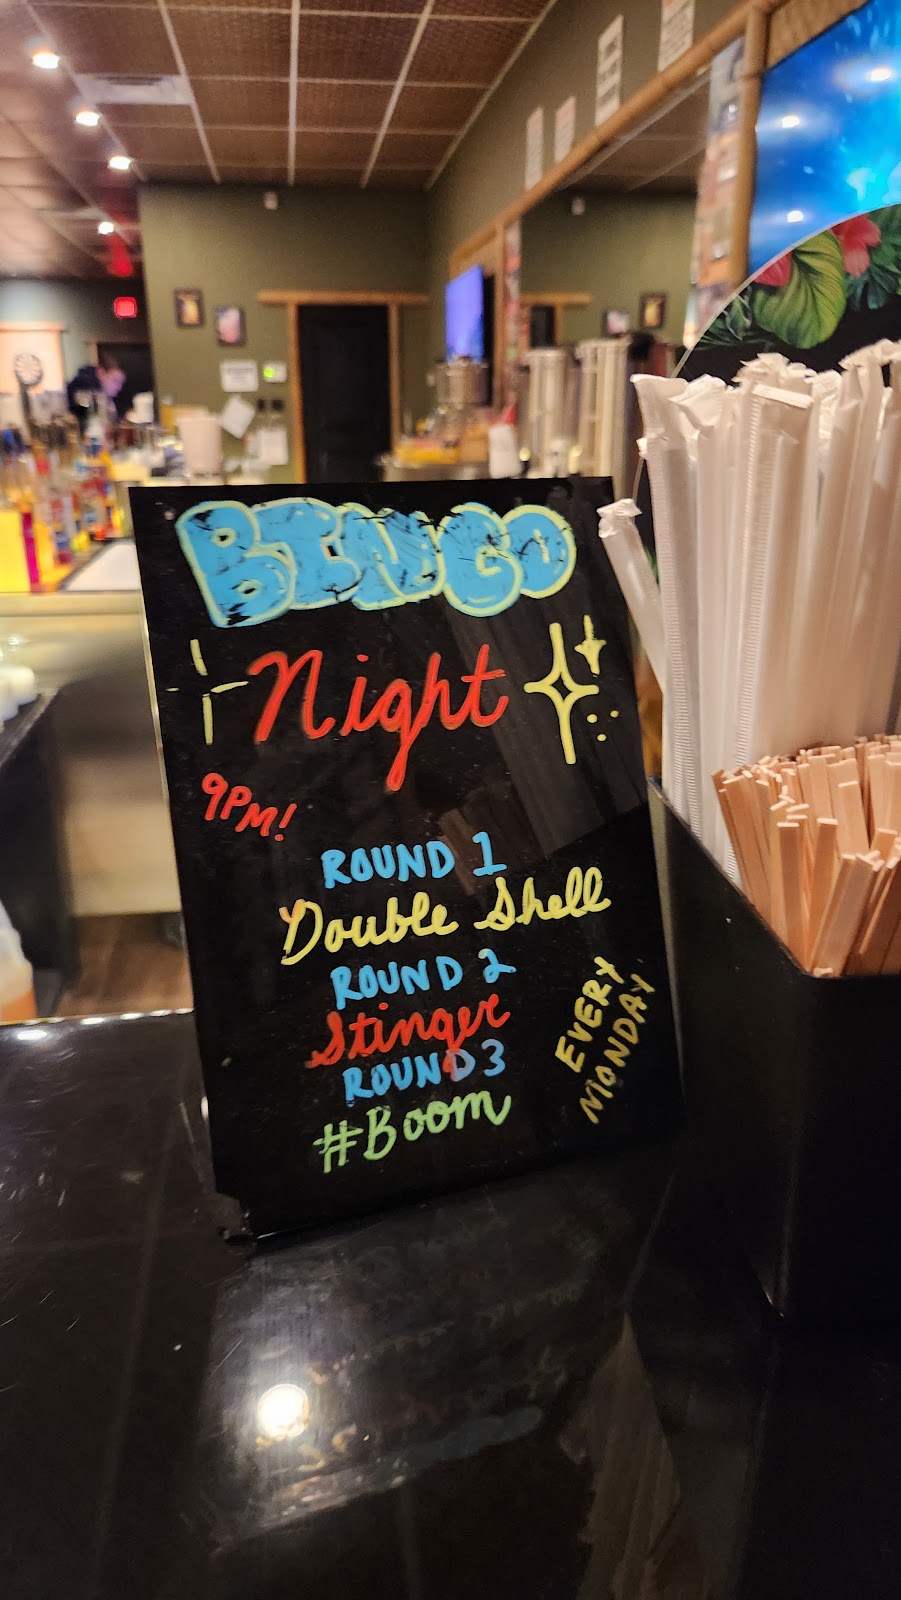 BINGO
Night
9PM!
ROUND 1
Double Shell
ROUND 2
Stinger
ROUND 3
#Boom
EVERY
MONDAY